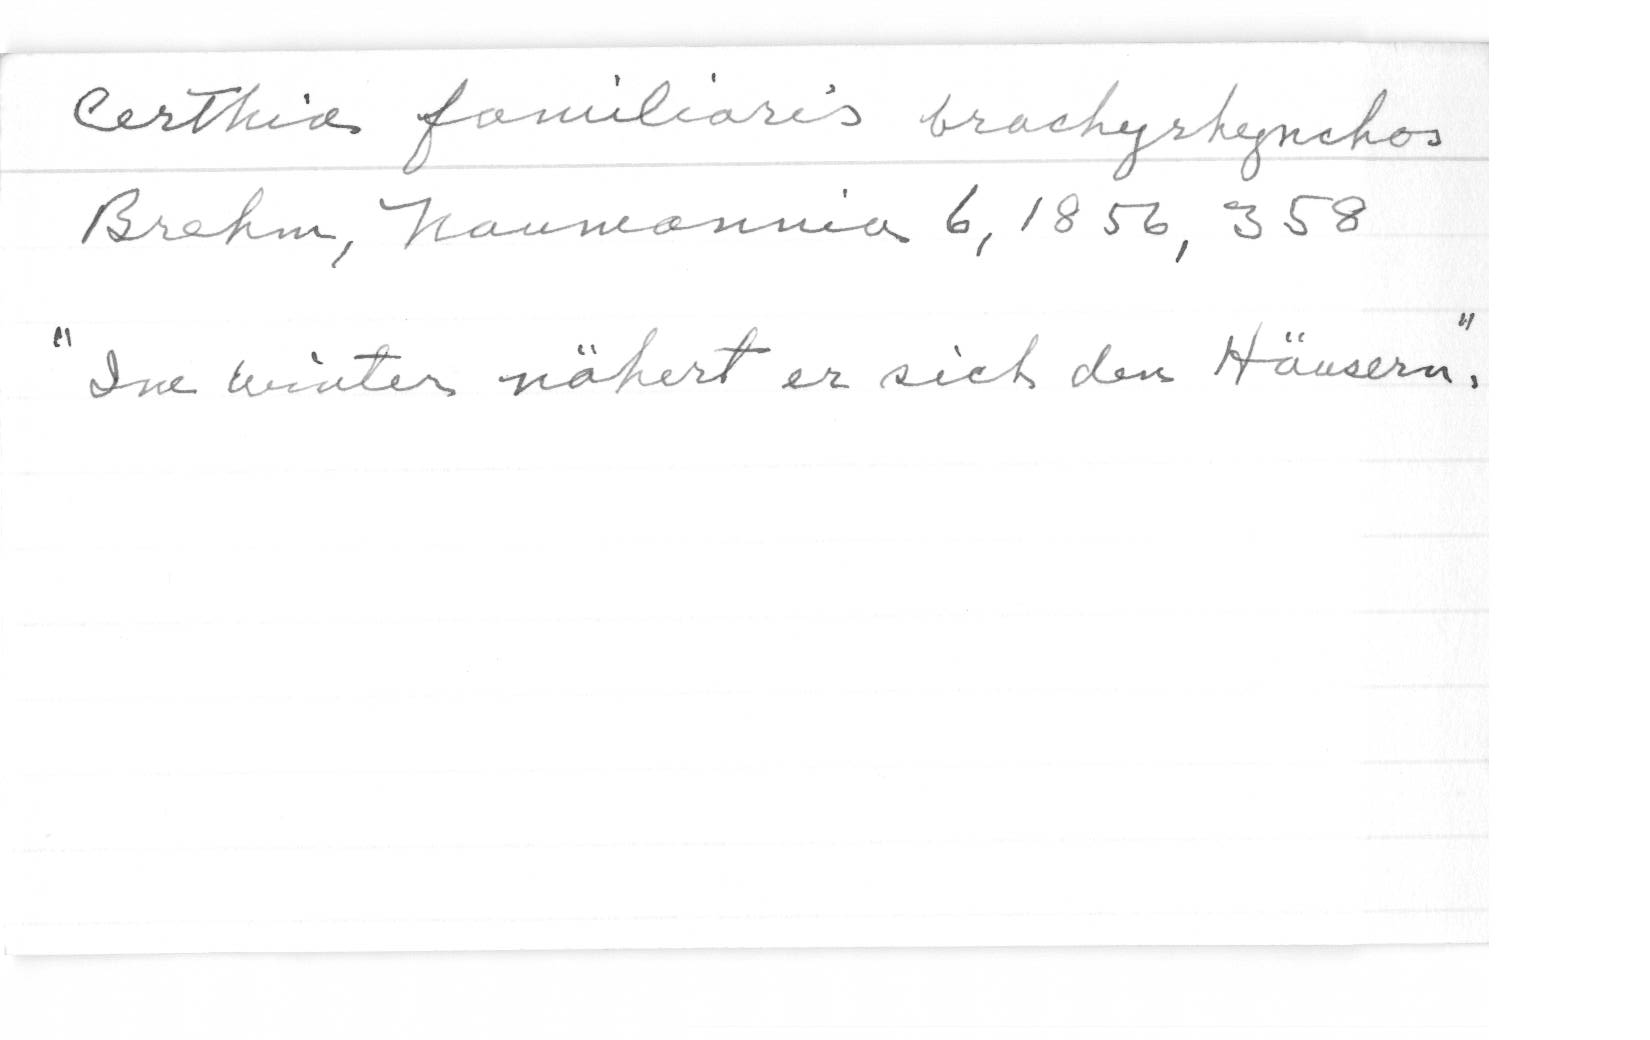 Certhia familiaris brachyrhynchos
Brehm, Naumannia 6, 1856, 358
"Im Winter nähert er sich den Häusern".